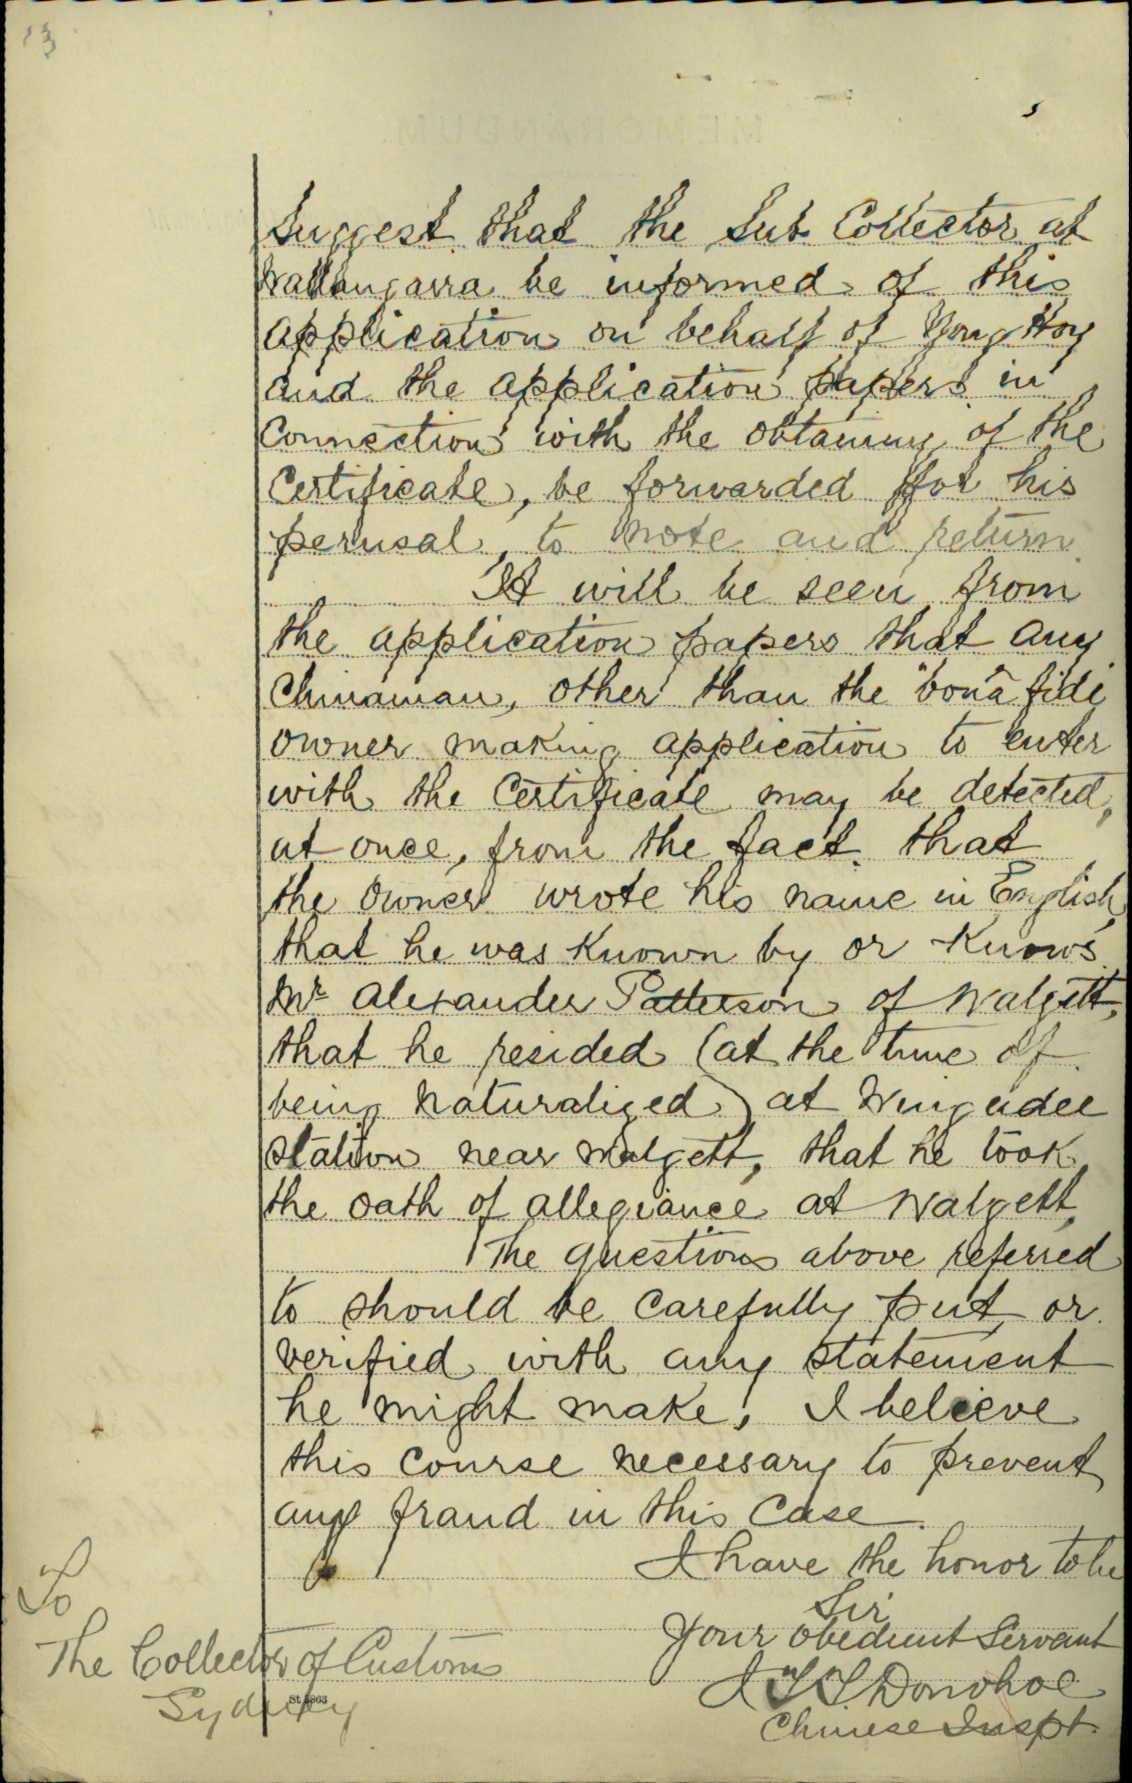 13
Suggest that the Sub Collector at
Wallangarra be informed of this
application on behalf of Yong Hoy
and the application papers in
Connection with the obtaining of the
Certificate, be forwarded for his
perusal, to note and return
It will be seen from
the application papers that any
Chinaman, other than the "bona fide"
owner making application to enter
with the Certificate may be detected,
at once, from the fact that
the owner wrote his name in English,
that he was known by or knows
Mr Alexander Patterson of Walgett,
that he resided (at the time of
being naturalized) at Wingadee
station near Walgett, that he took
the oath of allegiance at Walgett,
The questions above referred
to should be carefully put, or
verified with any statement
he might make, I believe
this course necessary to prevent
any fraud in this case.
I have the honor to be
Sir
Your obedient Servant
J T T Donohoe
Chinese Inspt.
To
The Collector of Customs
Sydney
St 4863